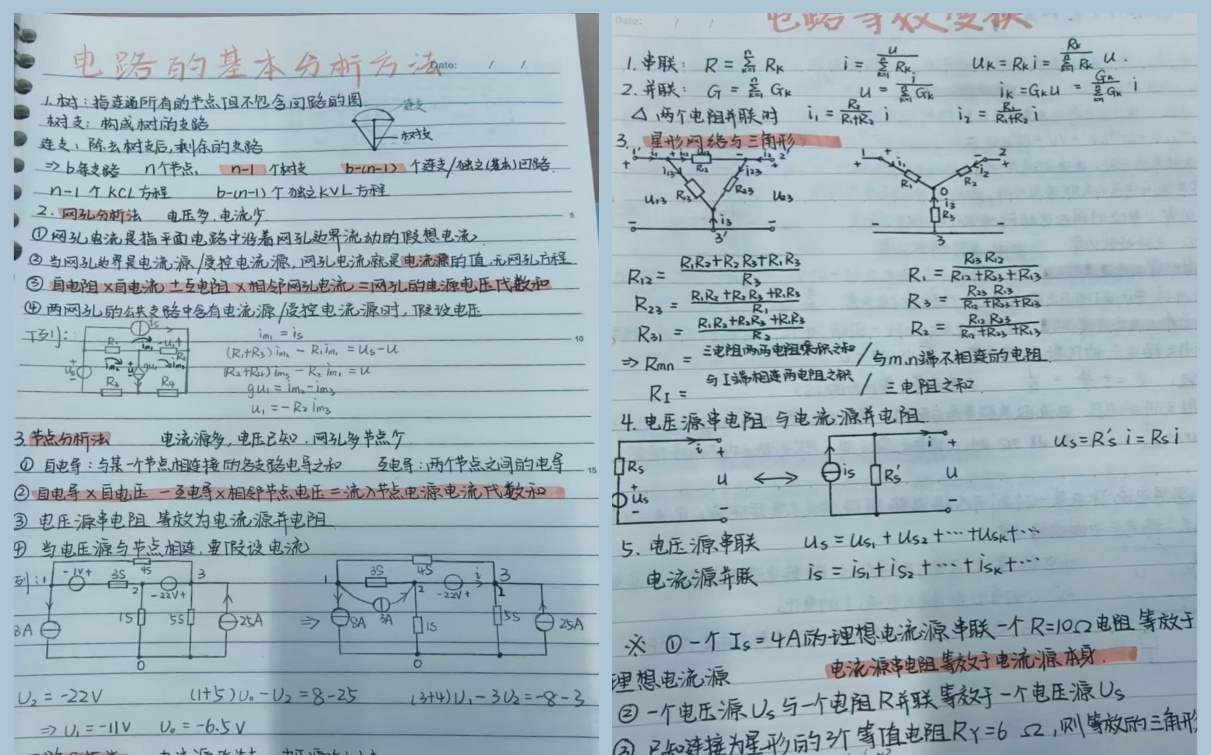 电路的基本分析方法
Date: / /
1.树：指连通所有的节点但不包含回路的图
连支
树支：构成树的支路
树枝
连支：除去树支后，剩余的支路
⇒ b条支路 n个节点， n-1个树枝 b-(n-1)个连支/独立(基本)回路.
n-1个KCL方程 b-(n-1)个独立KVL方程
2. 网孔分析法 电压多，电流少.
① 网孔电流是指平面电路中沿着网孔边界流动的假想电流
② 当网孔边界是电流源/受控电流源，网孔电流就是电流源的值，无网孔方程
③ 自电阻×自电流 ±互电阻×相邻网孔电流=网孔的电源电压代数和
④ 两网孔的公共支路中含有电流源/受控电流源时，假设电压
例1):
im₁ = is
(R₁+R₃)im₂ - R₁im₁ = us-u
(R₂+R₄)im₃ - R₂im₁ = u
gu₁ = im₂-im₃
u₁ = -R₂im₃
3.节点分析法 电流源多，电压已知，网孔多节点少
① 自电导：与某一个节点相连接的各支路电导之和 互电导：两个节点之间的电导
② 自电导×自电压 -互电导×相邻节点电压=流入节点电源电流代数和
③ 电压源串电阻等效为电流源并电阻
④ 当电压源与节点相连，要假设电流
例: 1 -1V+ 3S 2 4S -22V+ 3 1S 5S 25A 8A 0
⇒ 1 3S 3A 2 4S -22V+ i 3 8A 1S 5S 25A 0
U₂ = -22V (1+5)U₀-U₂=8-25 (3+4)U₁-3U₂=-8-3
⇒ U₁=-11V U₀=-6.5V
Date: / /
电路等效变换
1.串联： R=Σⁿₖ₌₁ Rk i = u/Σⁿₖ₌₁Rk uk=Rk i = Rk/Σⁿₖ₌₁Rk u.
2.并联： G=Σⁿₖ₌₁ Gk u = i/Σⁿₖ₌₁Gk ik=Gk u = Gk/Σⁿₖ₌₁Gk i
△ 两个电阻并联时 i₁=R₂/(R₁+R₂) i i₂=R₁/(R₁+R₂) i
3. 星形网络与三角形
R₁₂ = (R₁R₂+R₂R₃+R₁R₃)/R₃ R₁ = R₁₃R₁₂/(R₁₂+R₂₃+R₁₃)
R₂₃ = (R₁R₂+R₂R₃+R₁R₃)/R₁ R₃ = R₂₃R₁₃/(R₁₂+R₂₃+R₁₃)
R₃₁ = (R₁R₂+R₂R₃+R₁R₃)/R₂ R₂ = R₁₂R₂₃/(R₁₂+R₂₃+R₁₃)
⇒ Rmn = 三电阻两两电阻乘积之和 / 与m,n端不相连的电阻
RI = 与I端相连两电阻之积 / 三电阻之和.
4. 电压源串电阻与电流源并电阻
Rs us i + u - is Rs' i + u -
us=Rs' i = Rs i
5. 电压源串联 us=us₁+us₂+⋯+usk+⋯
电流源并联 is=is₁+is₂+⋯+isk+⋯
※ ①一个Is=4A的理想电流源串联一个R=10Ω电阻等效于
理想电流源 电流源串电阻等效于电流源本身.
② 一个电压源Us与一个电阻R并联等效于一个电压源Us
③ 已知连接为星形的3个等值电阻RY=6 Ω，则等效的三角形